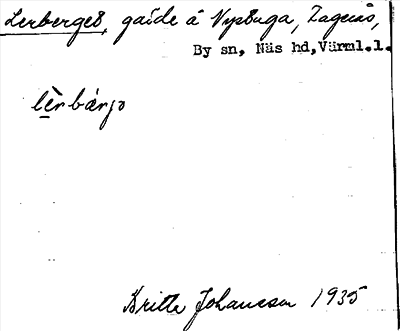 Lerberget, gärde å Nystuga, Zagenäs,
By sn, Näs hd, Värml.l.
lèrbárjo
Britta Johansson 1935